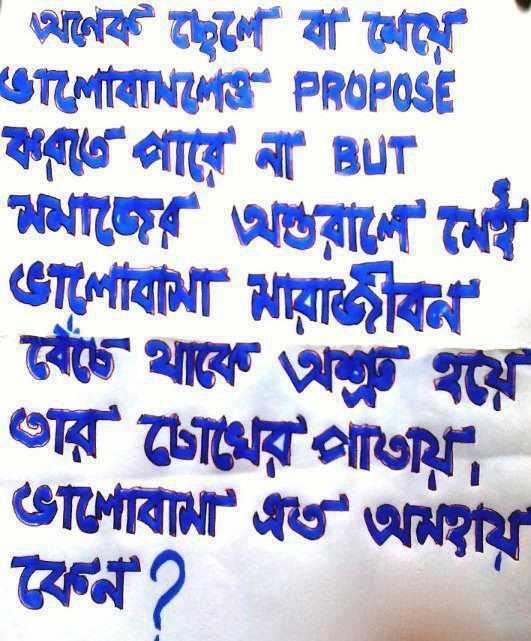 অনেক ছেলে বা মেয়ে
ভালোবাসলেও PROPOSE
করতে পারে না BUT
সমাজের অন্তরালে সেই
ভালোবাসা সারাজীবন
বেঁচে থাকে অশ্রু হয়ে
তার চোখের পাতায়।
ভালোবাসা এত অসহায়
কেন?